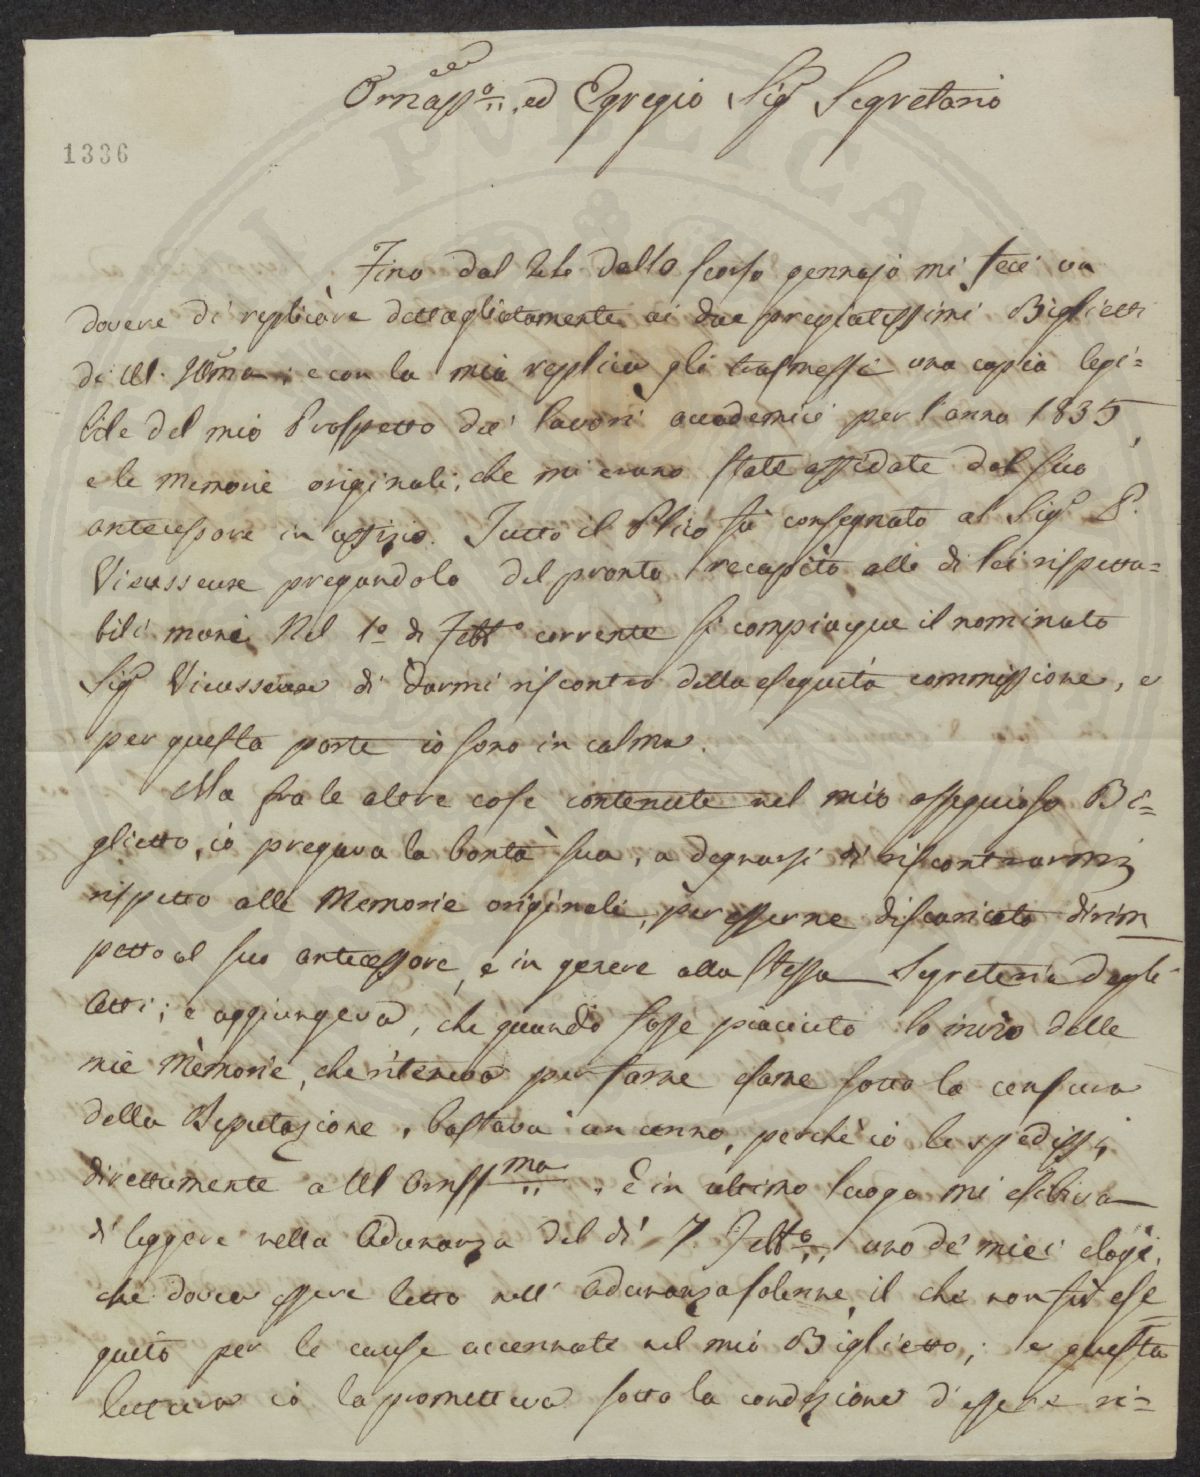 Ornatissº.. ed Egregio Sigr Segretario
1336
Fino dal dello scorso gennajo mi feci un
dovere di replicare dettagliatamente ai due pregiatissimi Biglietti
di VS. Illma; e con la mia replica gli trasmessi una copia legi=
bile del mio Prospetto de' lavori accademici per l'anno 1835,
e le Memorie originali, che mi erano state affidate dal suo
antecessore in uffizio. Tutto il Plico fù consegnato al Sigr P.
Vieusseux pregandolo del pronto recapito alle di lei rispetta=
bili mani. Nel 1º di Febbº corrente si compiacque il nominato
Sigr Vieusseux di darmi riscontro della eseguita commissione, e
per questa parte io sono in calma.
Ma fra le altre cose contenute nel mio ossequioso Bi=
glietto, io pregava la bontà sua, a degnarsi di riscontrarmi
rispetto alle Memorie originali, per esserne discaricato dirim
petto al suo antecessore, e in genere alla stessa Segreteria degli
Atti; e aggiungeva, che quando fosse piaciuto lo invio delle
mie Memorie, che riteneva per farne esame sotto la censura
della Deputazione, bastava un cenno, perchè io le spedissi
direttamente a VS Ornssma.. . E in ultimo luogo mi esibiva
di leggere nella Adunanza del dì 7. Febbº.. uno de' miei elogi,
che dovea essere letto nell' Adunanza solenne, il che non fù ese=
guito per le cause accennate nel mio Biglietto; e questa
lettura io la prometteva sotto la condizione d'essere ri=